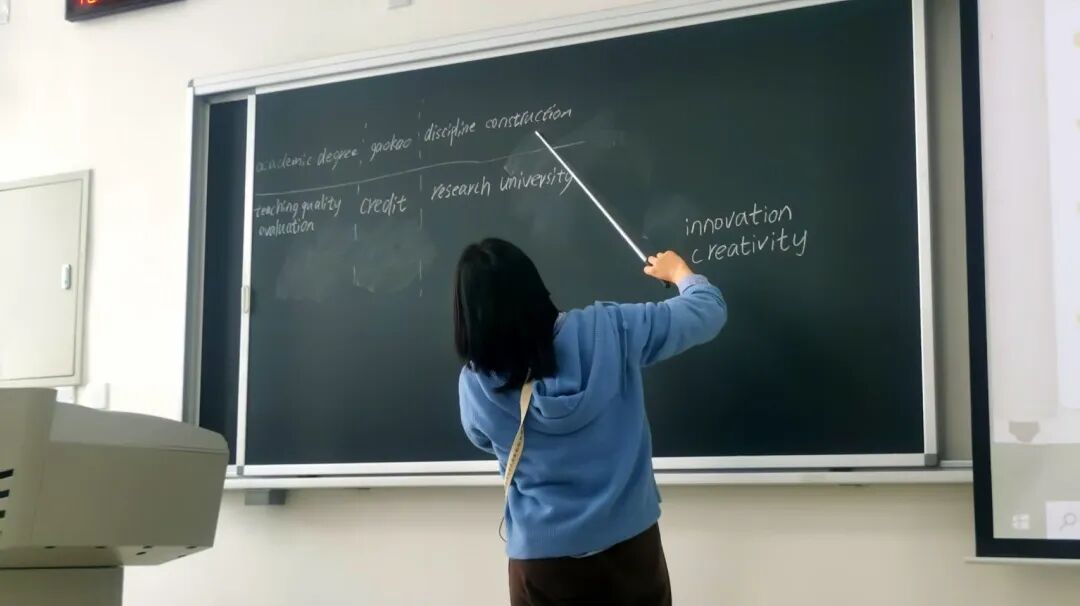 academic degree gaokao discipline construction
teaching quality credit research university
evaluation
innovation
creativity